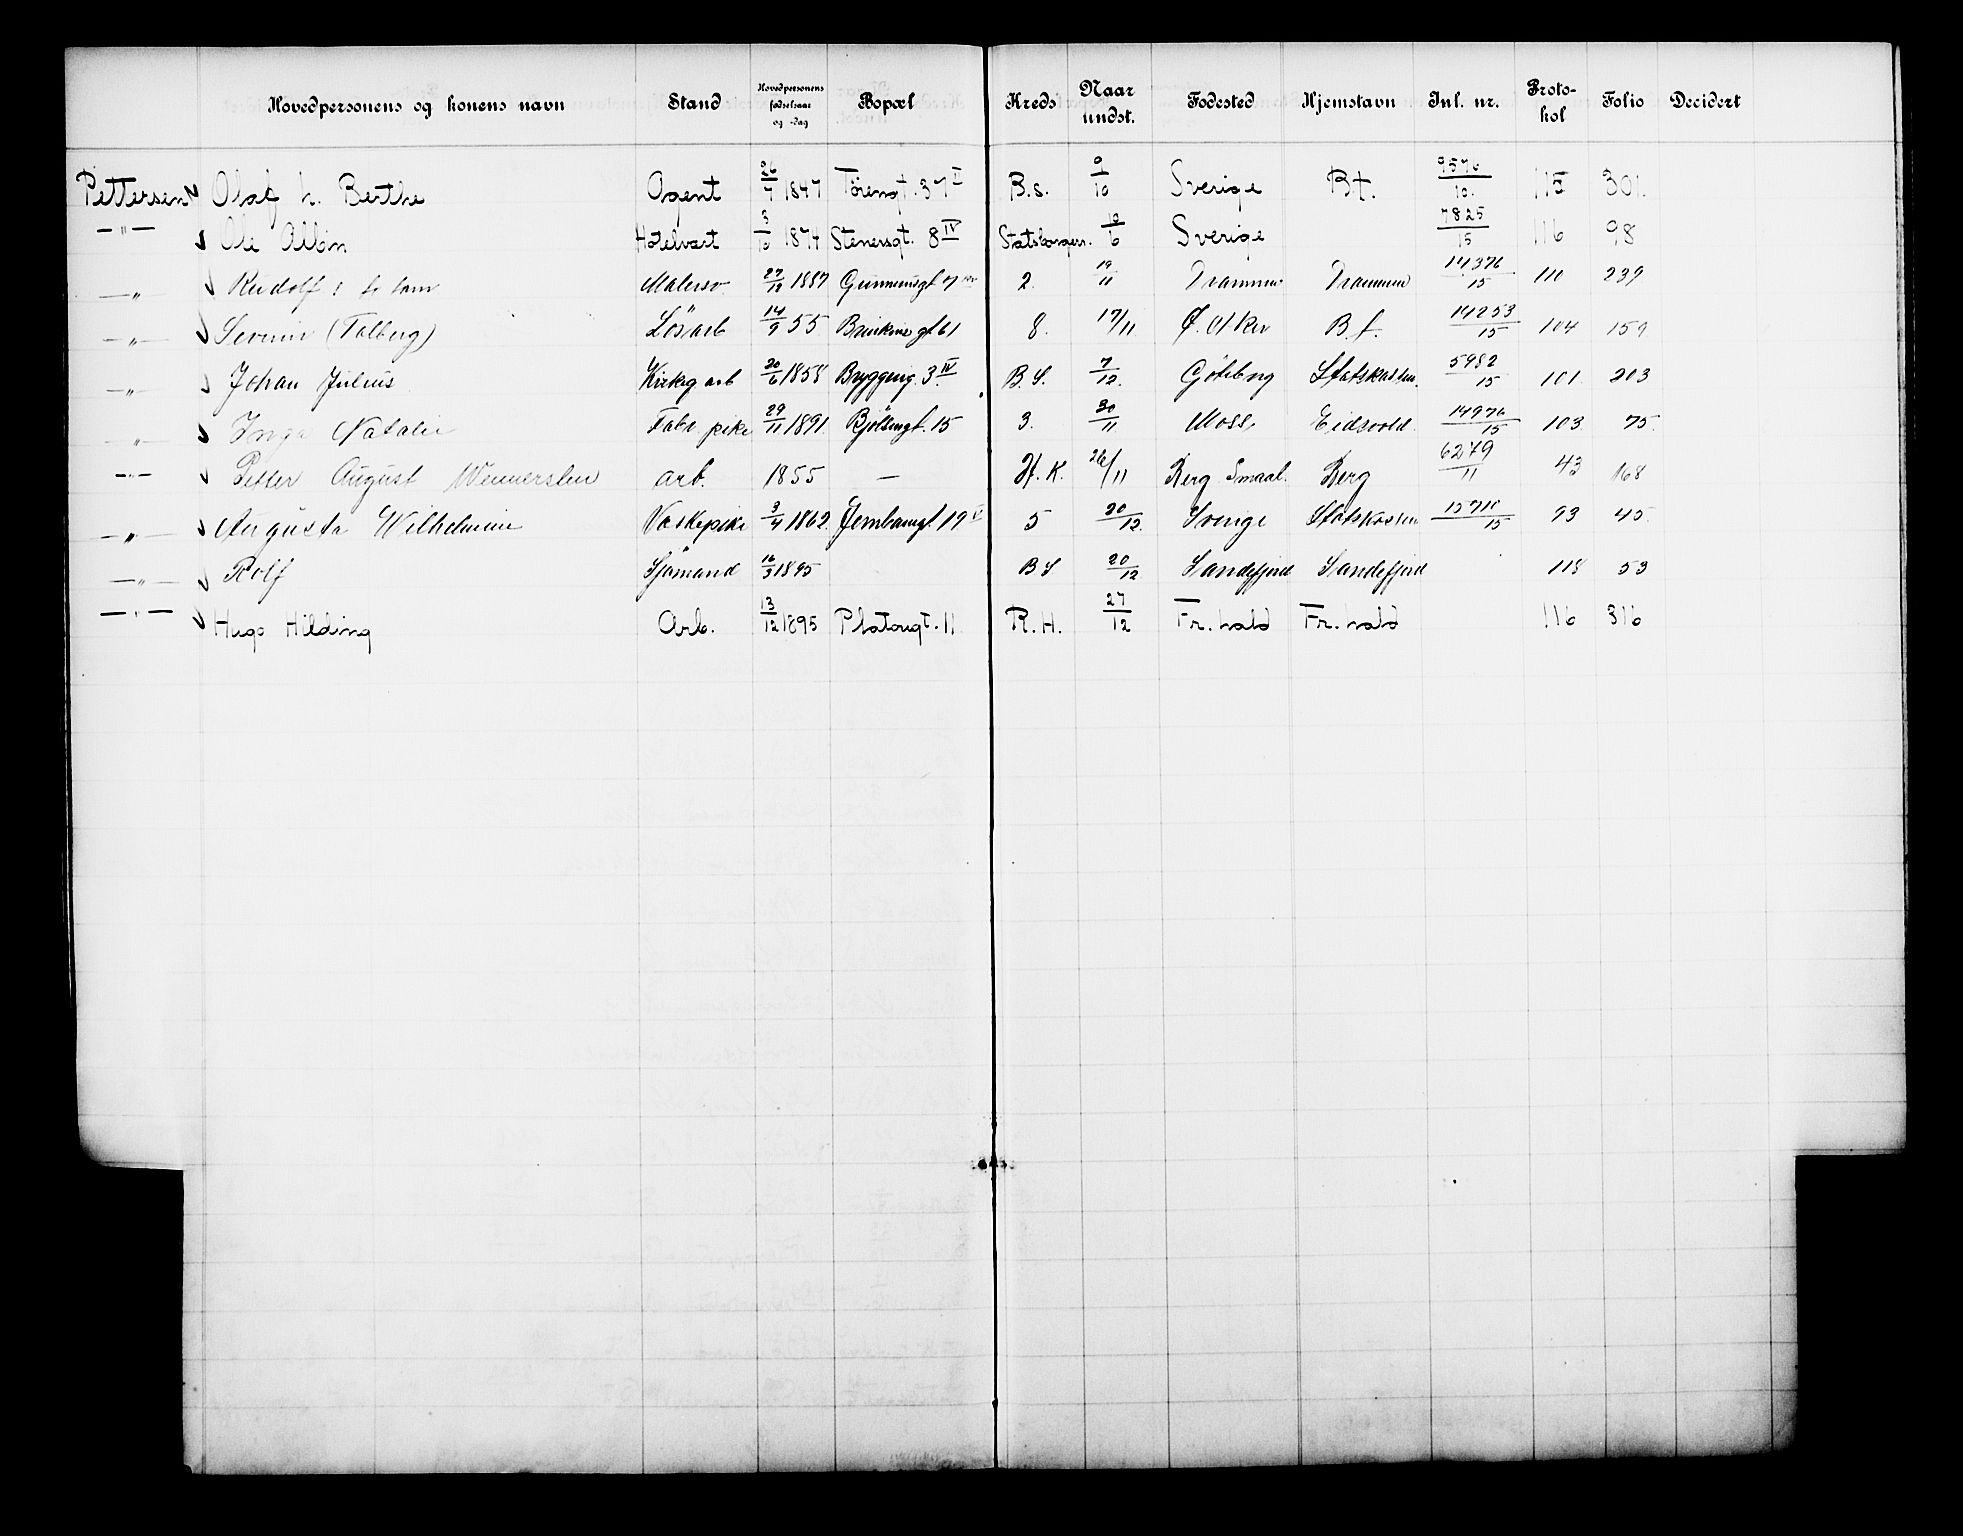 Hovedpersonens og konens navn Stand Hovedpersonens fødselsaar og -dag Bopæl Kreds Naar undst. Fødested Hjemstavn Jnl. nr. Proto-kol Folio Decidert
Pettersen Olaf h. Berthe Agent 26/7 1847 37 II B.s. 9/10 Sverige Bt. 9576/10. 301.
—"— Ole Albin Hotelvært 3/10 1874 Stenersgt. 8 IV Statsborgerr. 10/6 Sverige 7825/15 116 98
—"— Rudolf Malersv. 27/12 1887 2. 19/11 Drammen Drammen 14376/15 110 239
—"— Severin (Talberg) Lösarb 14/9 55 61 8. 17/11 Ø. Aker B.f. 14253/15 104 159
—"— Johan Julius arb 20/6 1858 Byggeng. 3 IV B.S. 7/12. Göteborg Statskassen. 5982/15 101 203
—"— Inga Natalie Fabr pike 29/11 1891. Bjölsengt. 15 3. 30/11 Moss, Eidsvold. 14976/15 103 75.
—"— Petter August Wennersten arb. 1855 — H.K. 26/11 Berg Smaal. Berg 6279/11 43 168
—"— Augusta Wilhelmine Vaskepike 3/4 1862. Jernbanegt. 19 5 20/12. Sverige Statskassen /15 93 45.
—"— Rolf Sjömand 16/3 1895 BS 20/12 Sandefjord Sandefjord 118 53
—"— Hugo Hilding Arb. 13/12 1895 Platougt. 11 R.H. 27/12 Fr.hald Fr.hald 116 316